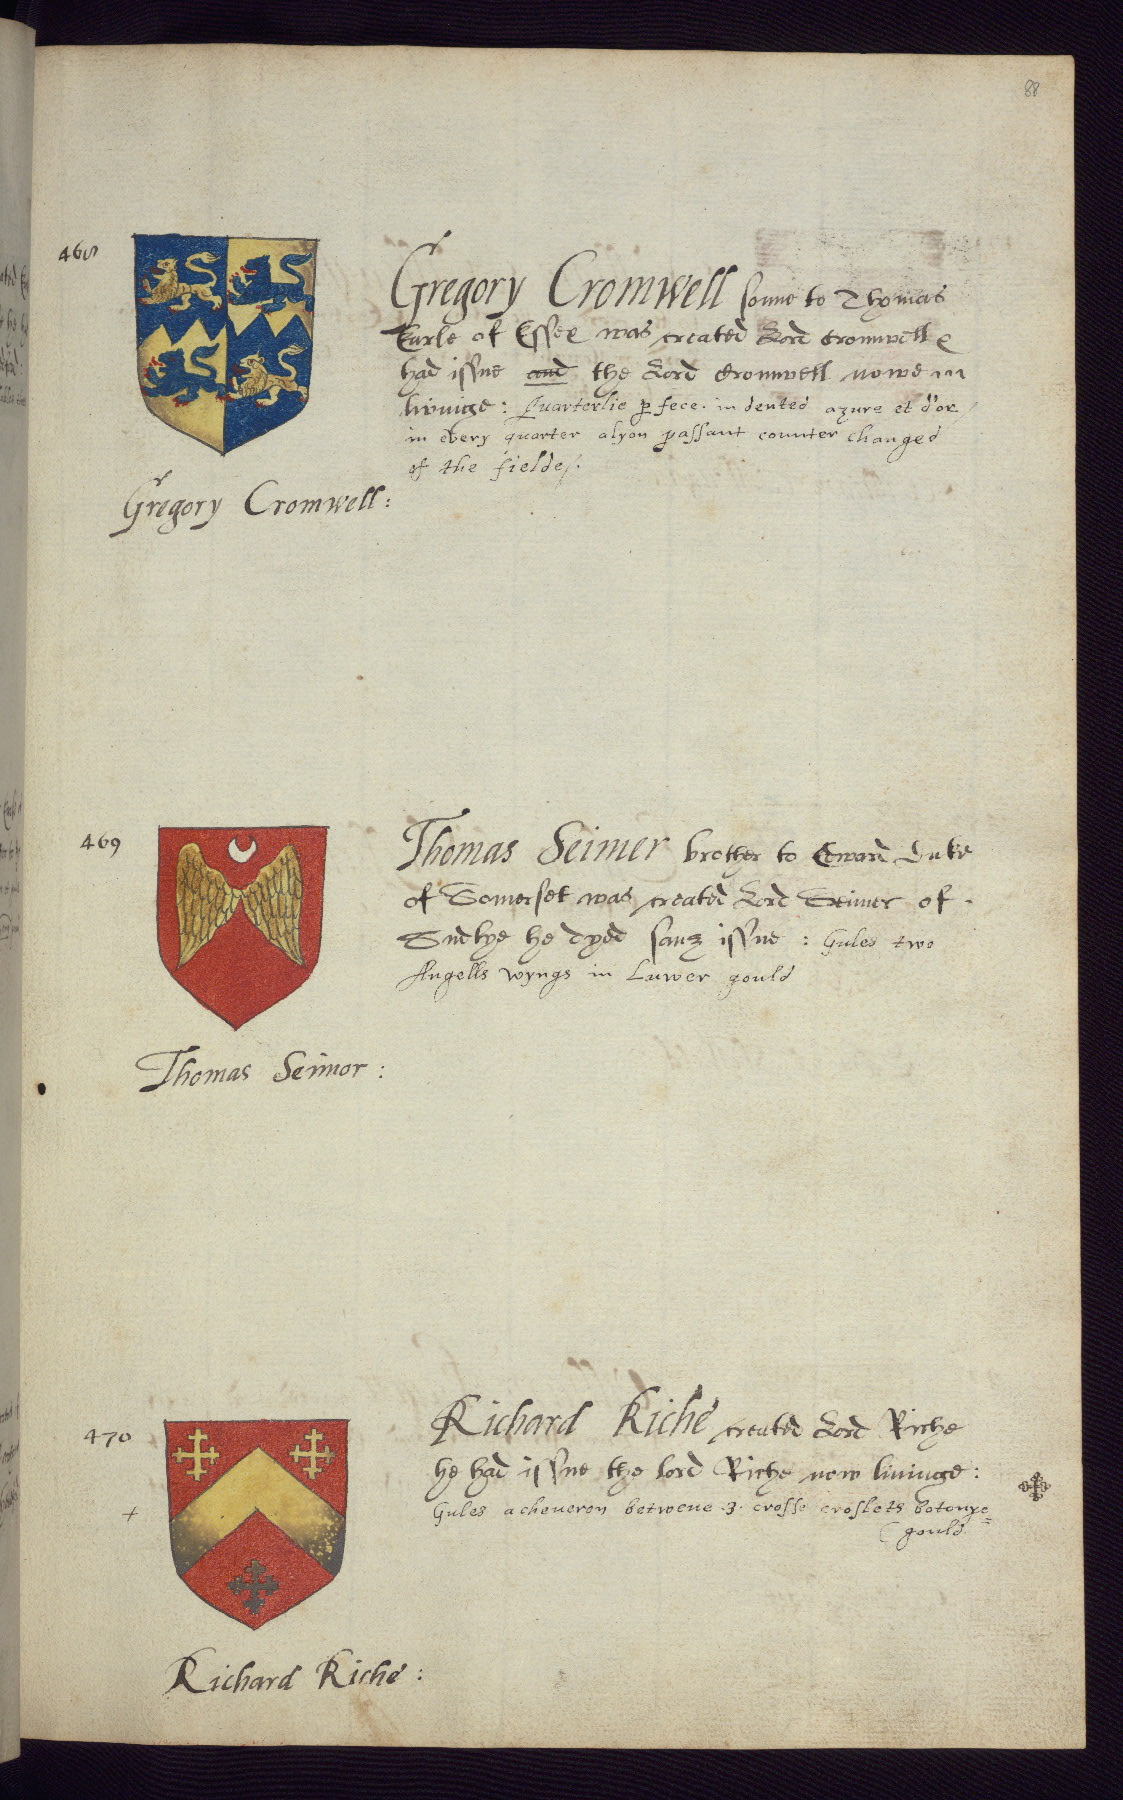 88
468
Gregory Cromwell sonne to Thomas
Earle of Essex was created Lord Cromwell &
had issue and the Lord Cromwell nowe in
livinge: Quarterlie p fece. in dented azure et d'or
in every quarter a lyon passant counter changed
of the fielde.
Gregory Cromwell:
469
Thomas Seimer brother to Edward Duke
of Somerset was created Lord Seimer of
Sudlye he dyed sanz issue: Gules two
Angells wyngs in Luwer gould
Thomas Seimor:
470
Richard Riche created Lord Riche
he had issue the lord Riche now livinge:
Gules a cheueron betwene .3. crosse croslets botonye
gould
Richard Riche: